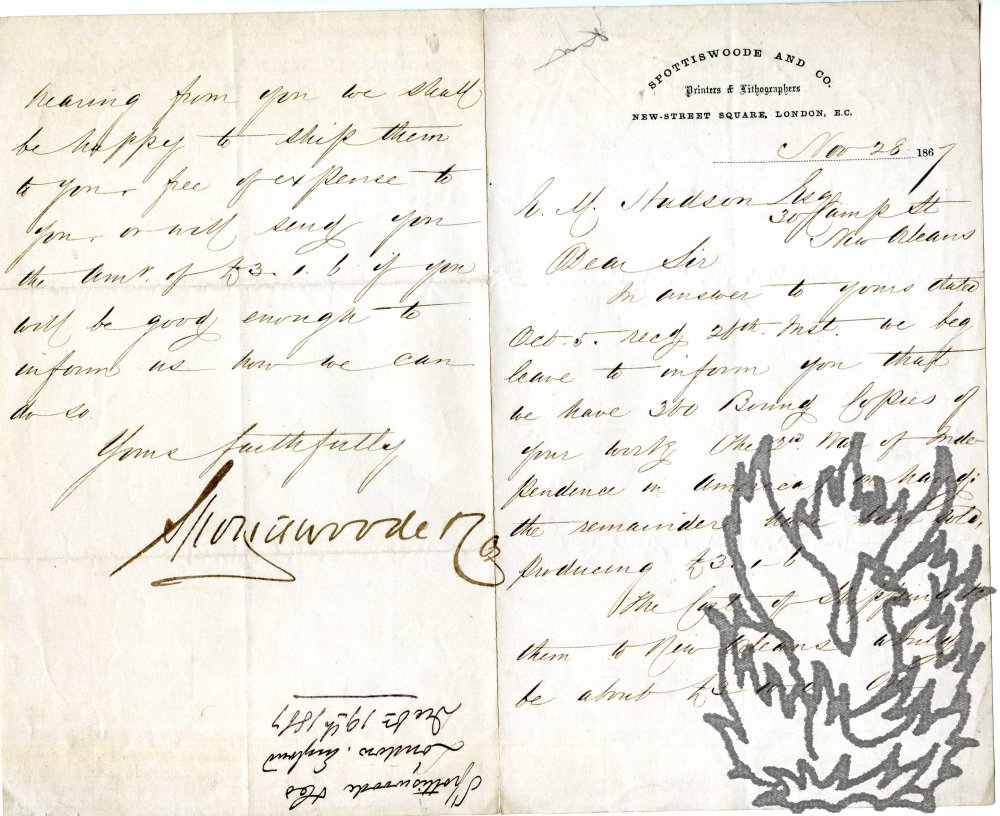 SPOTTISWOODE AND CO.
Printers & Lithographers
NEW-STREET SQUARE, LONDON, E.C.
Nov 28 1867
E. M. Hudson Esq
30 Camp St
New Orleans
Dear Sir
In answer to yours dated
Oct. 5. recd 26th Inst. we beg
leave to inform you that
we have 360 Bound Copies of
your work The 2nd War of Inde-
pendence in America on hand:
the remainder have been sold,
producing £3. 1. 6
The Cost of Shipping
them to New Orleans would
be about
hearing from you we shall
be happy to ship them
to you, free of expense to
you, or will send you
the Amt. of £3. 1. 6 if you
will be good enough to
inform us how we can
do so
Yours faithfully
Spottiswoode & Co
Spottiswoode & Co
London. England
Decbr 19th 1867